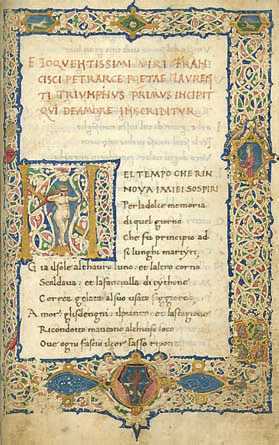 ELOQVENTISSIMI VIRI FRAN
CISCI PETRARCE POETAE LAVREN
TI TRIVMPHVS PRIMVS INCIPIT
QVI DEAMORE INSCRIBITVR
NEL TEMPO CHE RIN
NOVA IMIEI SOSPIRI
Per la dolce memoria
di quel giorno
Che fu principio ad
si lunghi martyri,
Gia il sole al thauro luno: et laltro corno
Scaldaua: et la fanciulla di tythone
Correa gelata al suo usato soggiorno
Amor: gli sdengni: il pianto: et la stagione
Ricondotto maueano al chiuso loco
Oue ogni fascio il cor lasso ripone